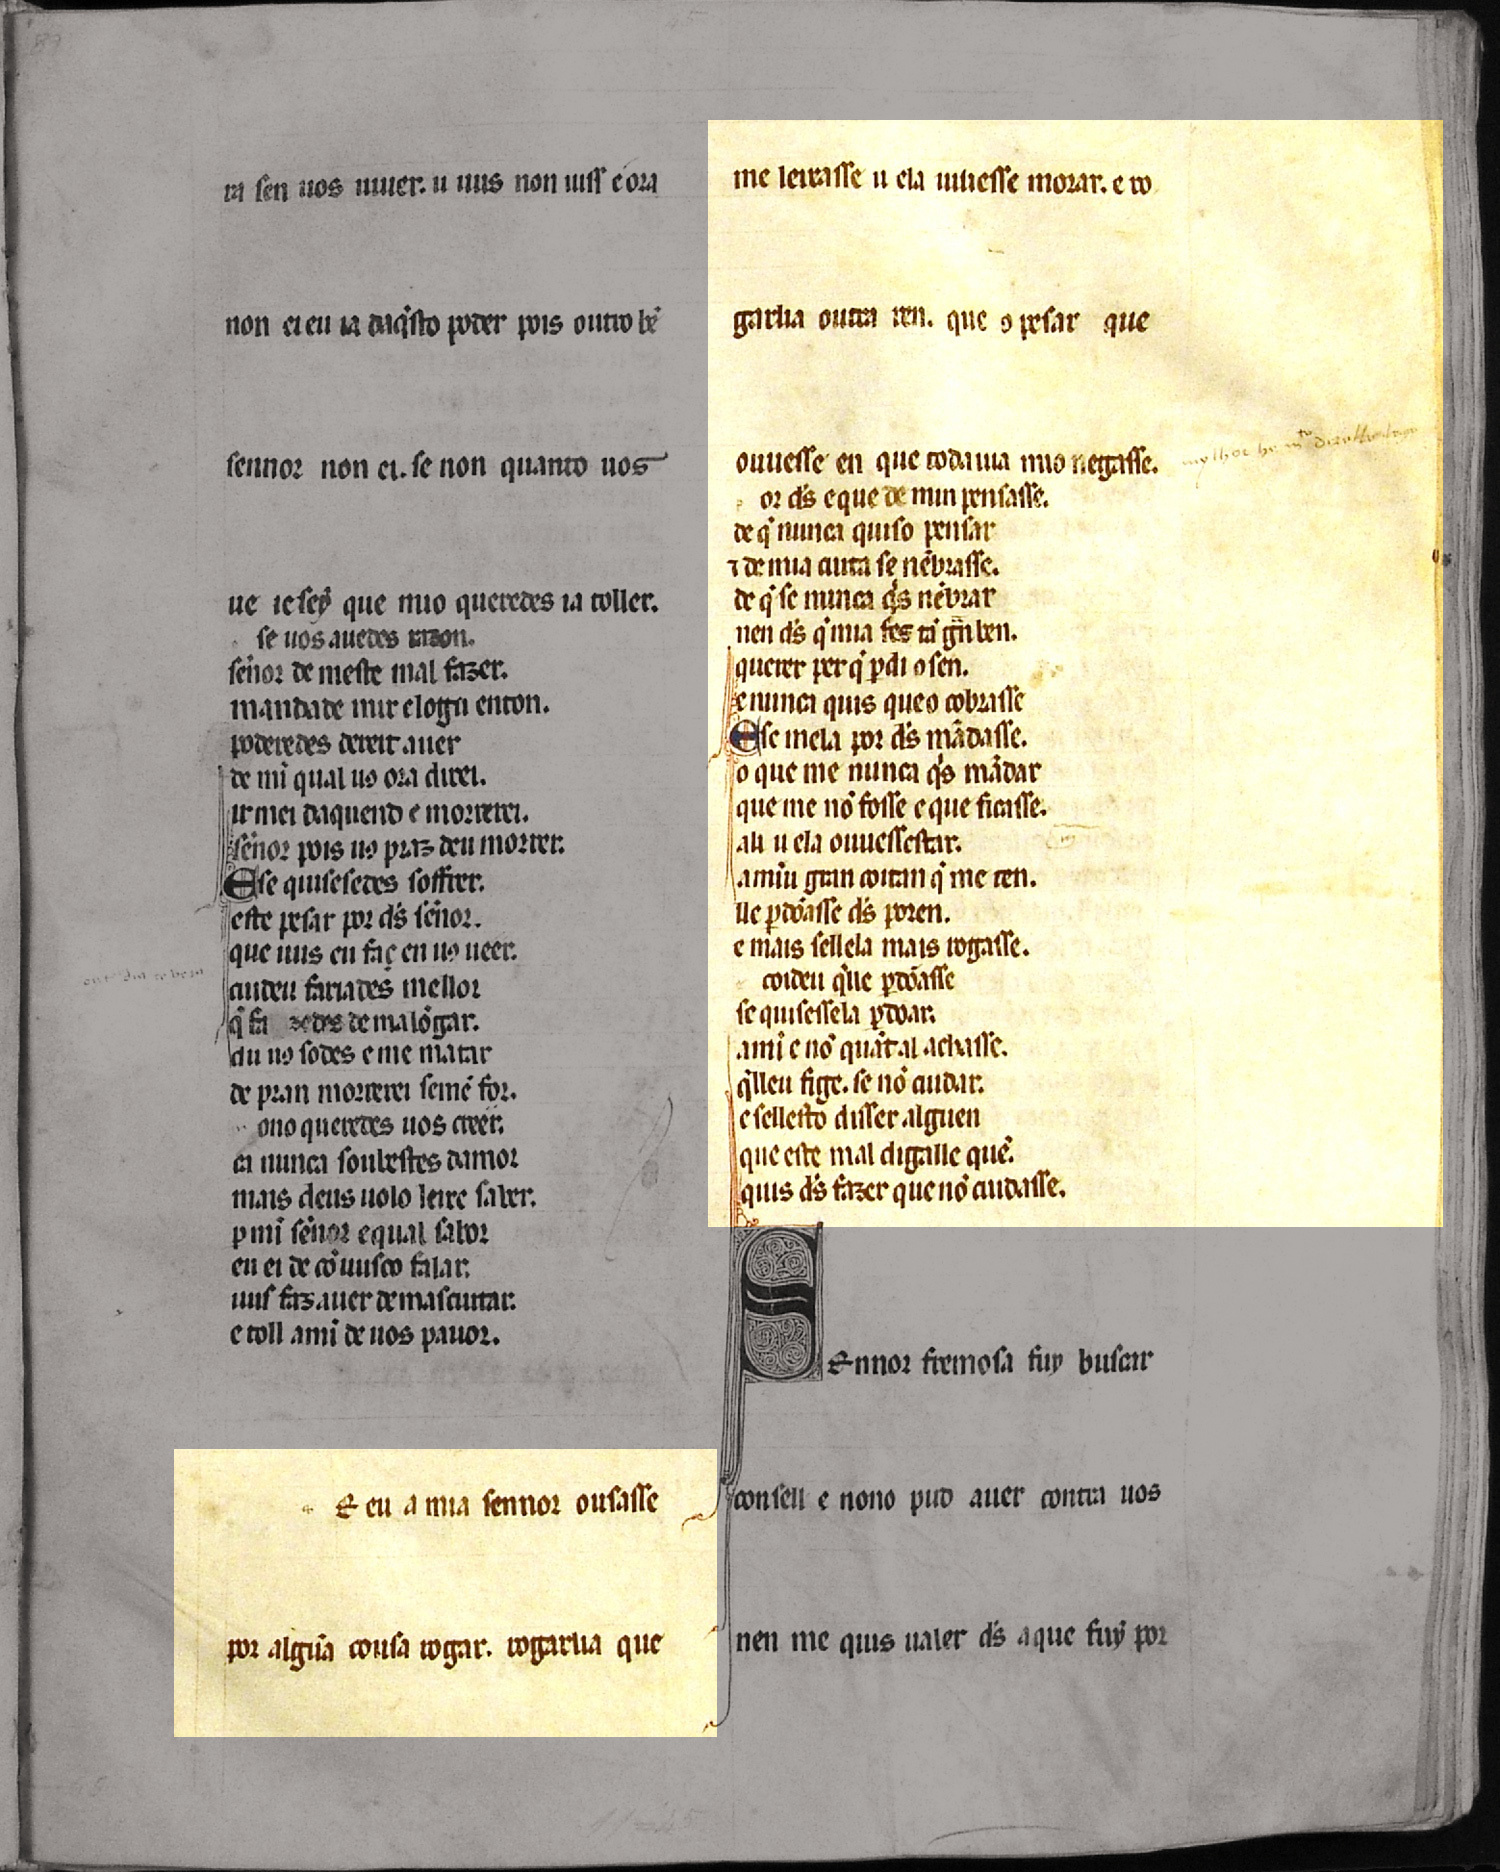 ia sen uos uiuer. u uus non uiss e ora
non ei eu ia daq̃sto poder pois outro bẽ
sennor non ei. se non quanto uos
ue ie sey que mio queredes ia toller.
se uos auedes razon.
señor de meste mal fazer.
mandade mir e logu enton.
poderedes dereit auer
de mĩ qual uꝯ ora direi.
ir mei daquend e morrerei.
señor pois uꝯ praz deu morrer.
E se quisesedes soffrer.
este pesar por d̃s señor.
que uus eu faç en uꝯ ueer.
cuideu fariades mellor
q̃ fa zedes de malõgar.
du uꝯ sodes e me matar
de pran morrerei semẽ for.
ono queredes uos creer.
ca nunca soubestes damor
mais deus uolo leixe saber.
p mĩ señor e qual sabor
en ei de cõ uusco falar.
uus faz auer de mascuitar.
e toll a mĩ de uos pauor.
E eu a mia sennor ousasse
por algũa cousa rogar. rogaria que
me leixasse u ela uiuesse morar. e ro
garlia outra ren. que o pesar que
ouuesse en que todauia mio negasse.
or d̃s e que de min pensasse.
de q̃ nunca quiso pensar
⁊ de mia cuita se nẽbrasse.
de q̃ se nunca q̃s nẽbrar
nen d̃s q̃ mia fez tã grã ben.
querer per q̃ pdi o sen.
e nunca quis que o cobrasse
E se mela por d̃s mãdasse.
o que me nunca q̃s mãdar
que me nõ fosse e que ficasse.
ali u ela ouuessestar.
a miu gran coitan q̃ me ten.
lle pdõasse d̃s poren.
e mais sellela mais rogasse.
coideu q̃lle pdõasse
se quisessela pdoar.
a mi e nõ quãt al achasse.
q̃lleu fige. se nõ cuidar.
e sellesto disser alguen
que este mal digalle quẽ.
quis d̃s fazer que nõ cuidasse.
SEnnor fremosa fuy buscar
consell e nono pud auer contra uos
nen me quis ualer d̃s a que fuy por